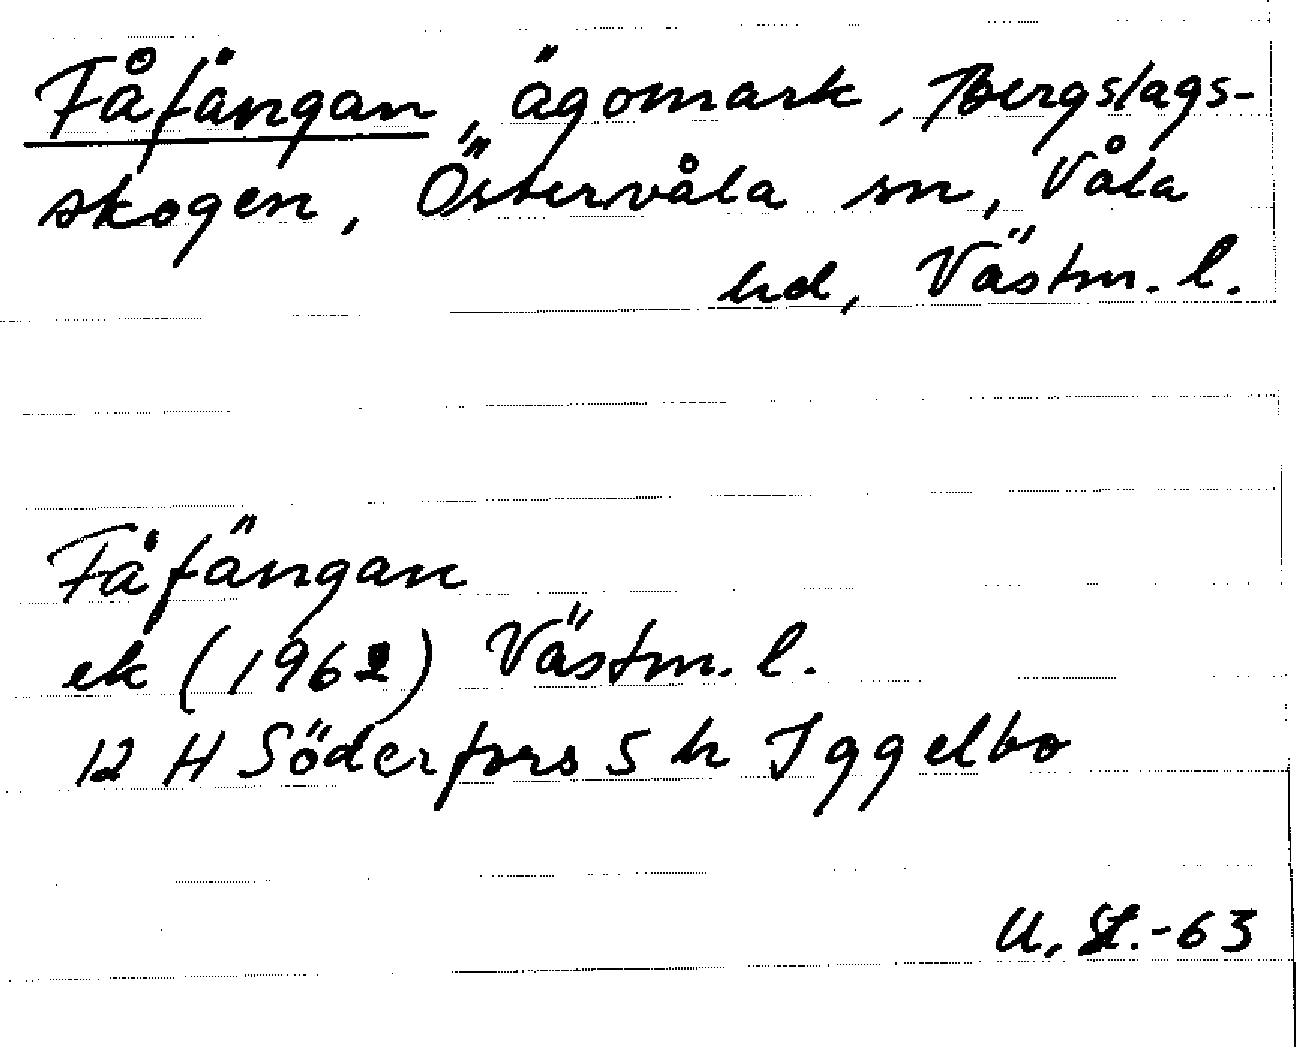 Fåfängan, ägomark, Bergslags-
skogen, Östervåla sn, Våla
hd, Västm. l.
Fåfängan
ek (1962) Västm. l.
12 H Söderfors 5 h Iggelbo
U. St.-63